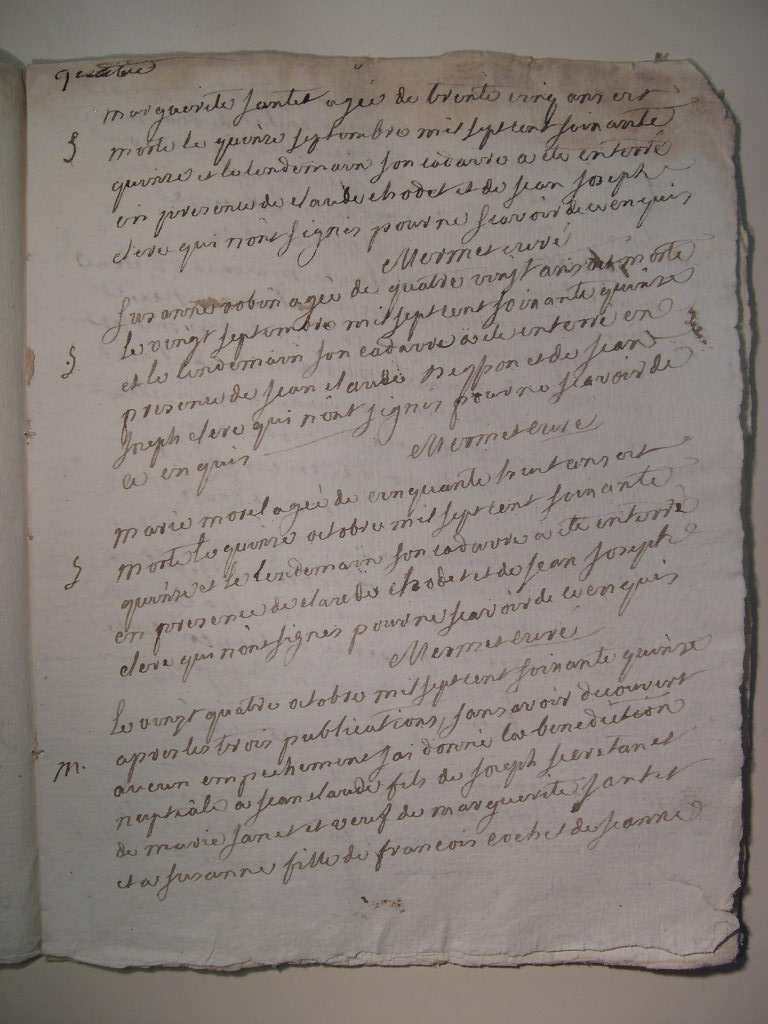 marguerite santet agée de trente cinq ans est
§ morte le quinze septembre mil sept cent soixante
quinze et le lendemain son cadavre a ete enterré
en presence de claude chodet et de jean joseph
clere qui n'ont signés pour ne scavoir de ce enquis
Mermet curé
susanne robin agée de quatre vingt ans est morte
§ le vingt septembre mil sept cent soixante quinze
et le lendemain son cadavre a ete enterré en
presence de jean claude et de jean
joseph clere qui n'ont signés pour ne scavoir de
ce enquis
Mermet curé
marie morel agée de cinquante huit ans est
§ morte le quinze octobre mil sept cent soixante
quinze et le lendemain son cadavre a ete enterré
en presence de claude chodet et de jean joseph
clere qui n'ont signés pour ne scavoir de ce enquis
Mermet curé
le vingt quatre octobre mil sept cent soixante quinze
apres les trois publications, sans avoir decouvert
m. aucun empechement j'ai donné la benediction
nuptiale a jean claude fils de joseph secretan et
de marie janet et veuf de marguerite santet
et a susanne fille de francois cochet de jeanne